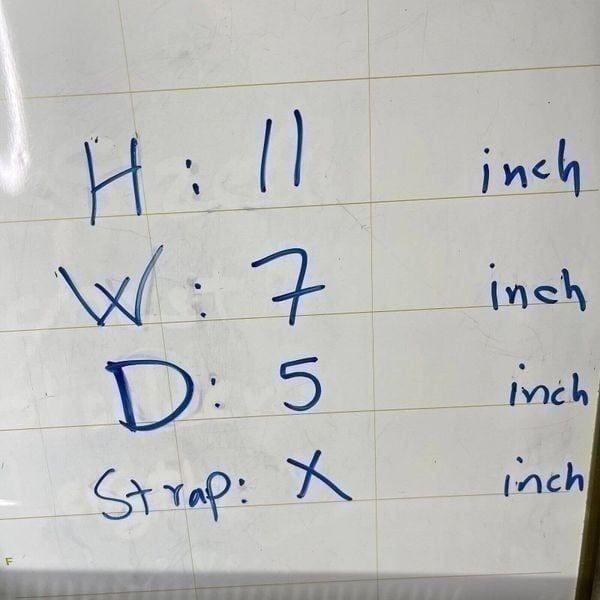 H : 11 inch
W : 7 inch
D : 5 inch
Strap: X inch
F